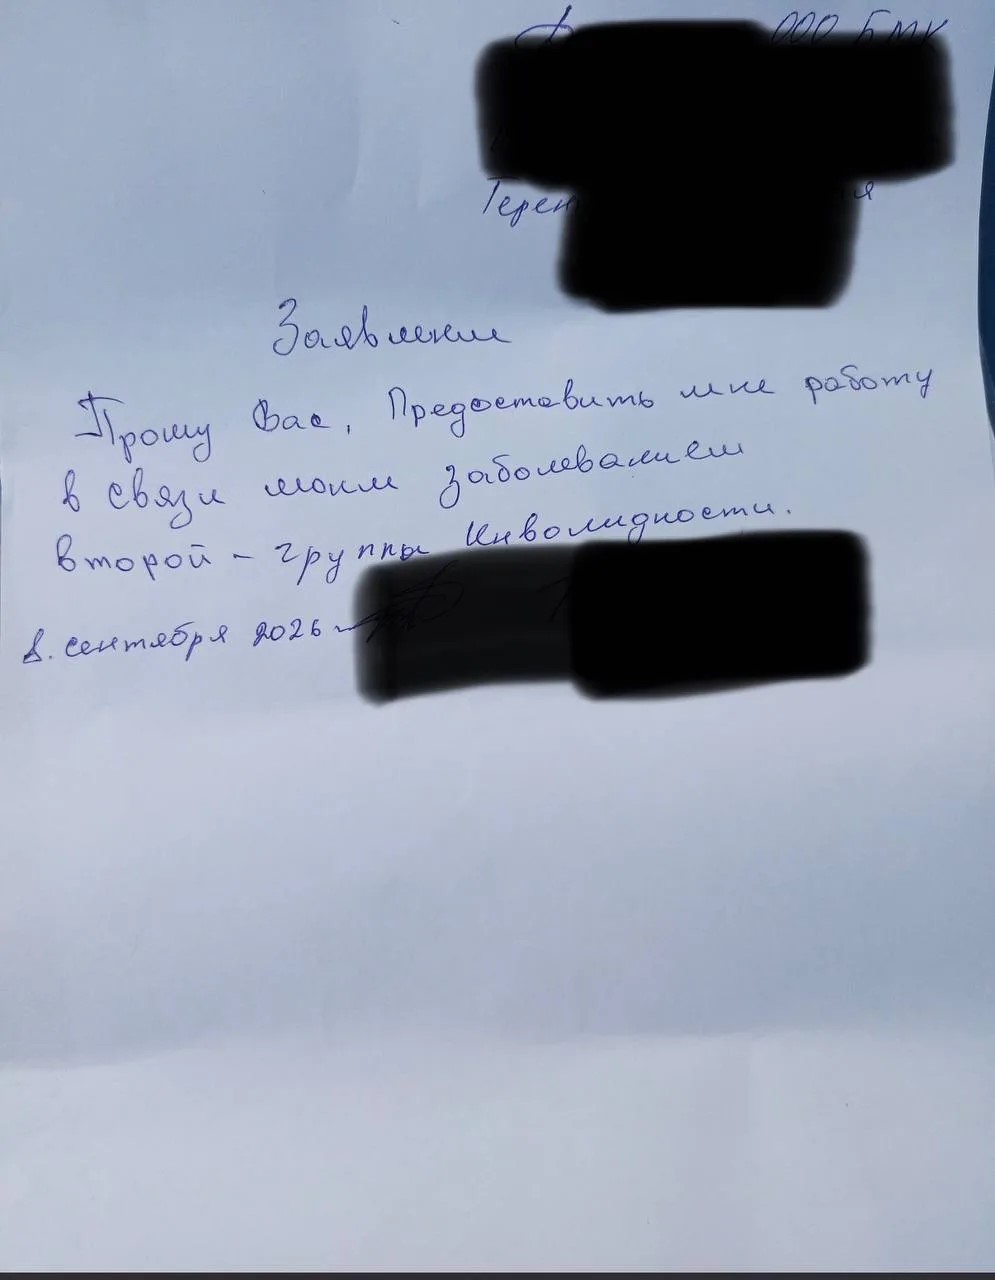 ООО БМК
Терен я
Заявление
Прошу Вас, Предоставить мне работу
в связи моим заболеванием
второй - группы Инволидности.
8. сентября 2026